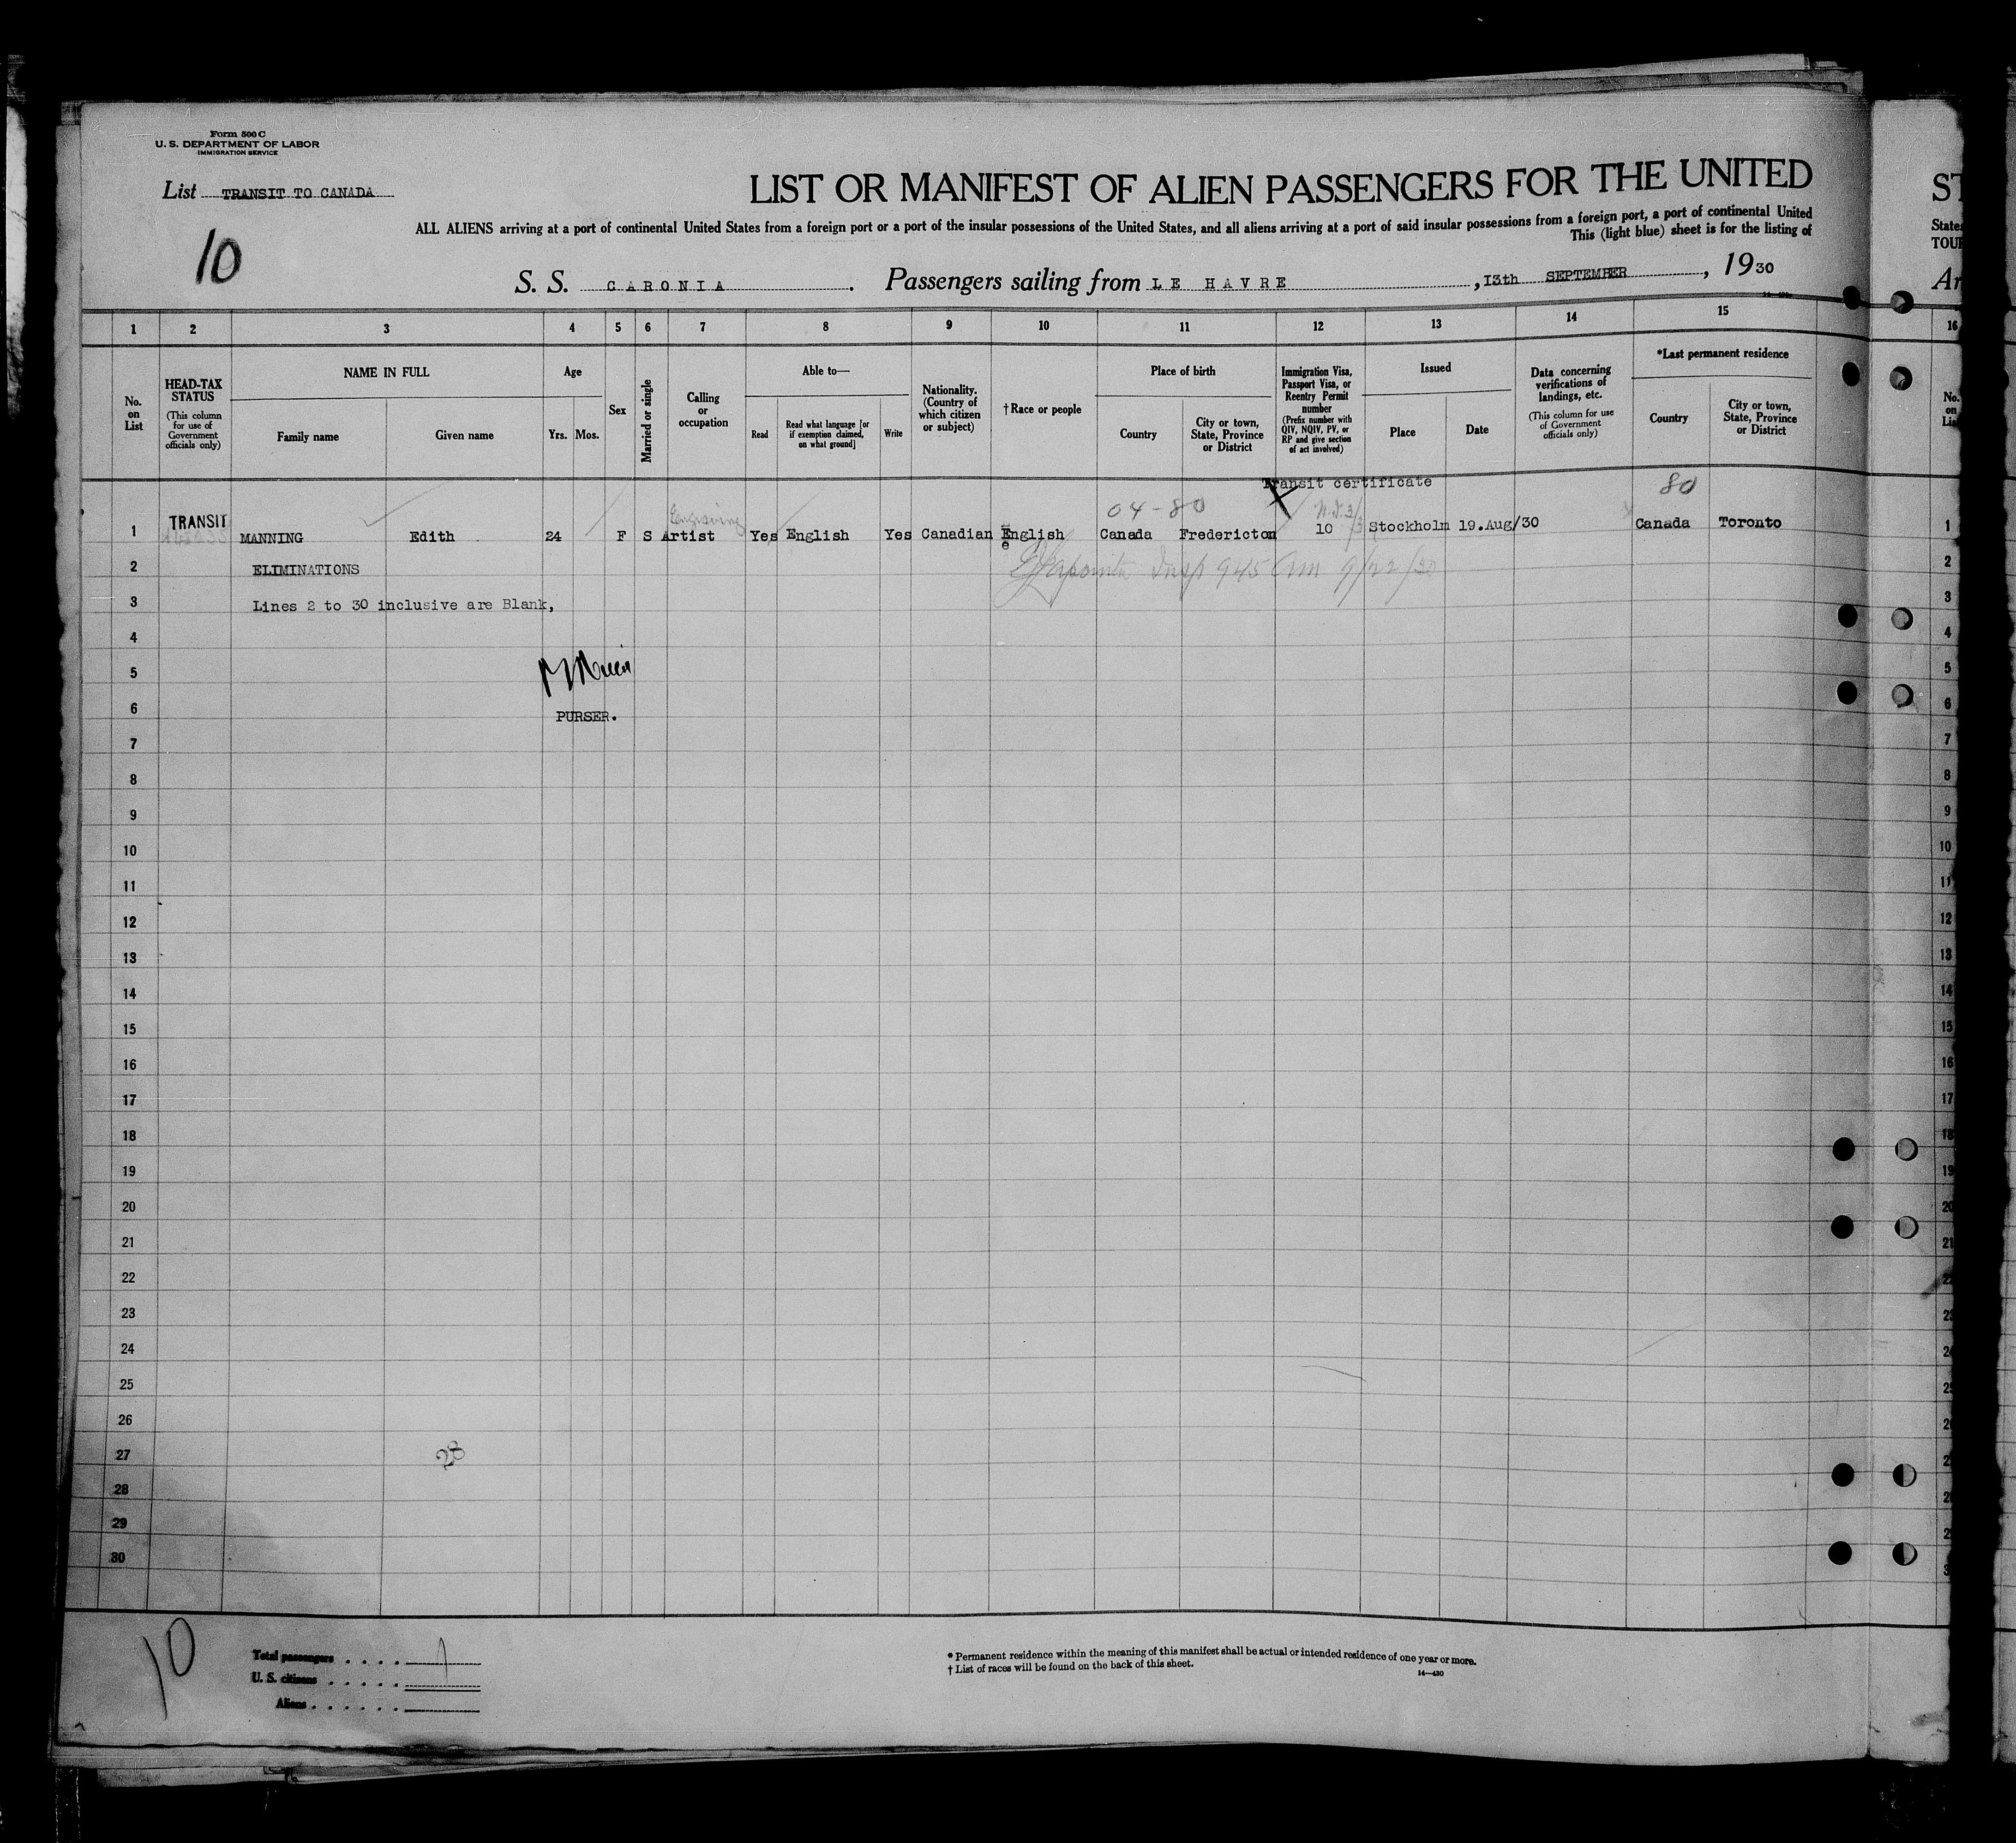 Form 500 C
U. S. DEPARTMENT OF LABOR
IMMIGRATION SERVICE
List TRANSIT TO CANADA
10
LIST OR MANIFEST OF ALIEN PASSENGERS FOR THE UNITED
ALL ALIENS arriving at a port of continental United States from a foreign port or a port of the insular possessions of the United States, and all aliens arriving at a port of said insular possessions from a foreign port, a port of continental United
This (light blue) sheet is for the listing of
S. S. CARONIA. Passengers sailing from LE HAVRE, 13th SEPTEMBER, 1930
1 2 3 4 5 6 7 8 9 10 11 12 13 14 15
No. on List
HEAD-TAX STATUS (This column for use of Government officials only)
NAME IN FULL
Family name
Given name
Age
Yrs. Mos.
Sex
Married or single
Calling or occupation
Able to—
Read
Read what language [or if exemption claimed, on what ground]
Write
Nationality. (Country of which citizen or subject)
†Race or people
Place of birth
Country
City or town, State, Province or District
Immigration Visa, Passport Visa, or Reentry Permit number (Prefix number with QIV, NQIV, PV, or RP and give section of act involved)
Issued
Place
Date
Data concerning verifications of landings, etc. (This column for use of Government officials only)
*Last permanent residence
Country
City or town, State, Province or District
Transit certificate
04-80
80
Engraving
1 TRANSIT MANNING Edith 24 F S Artist Yes English Yes Canadian English Canada Fredericton 10 Stockholm 19.Aug/30 Canada Toronto
2 ELIMINATIONS Insp 945 Am 9/22/30
3 Lines 2 to 30 inclusive are Blank,
4
5
6 PURSER.
7
8
9
10
11
12
13
14
15
16
17
18
19
20
21
22
23
24
25
26
27 28
28
29
30
10
Total passengers . . . . 1
U. S. citizens . . . . .
Aliens . . . . . .
* Permanent residence within the meaning of this manifest shall be actual or intended residence of one year or more.
† List of races will be found on the back of this sheet.
14—430
ST
States
TOUR
Ar
16
No. on List
1
2
3
4
5
6
7
8
9
10
11
12
13
14
15
16
17
18
19
20
21